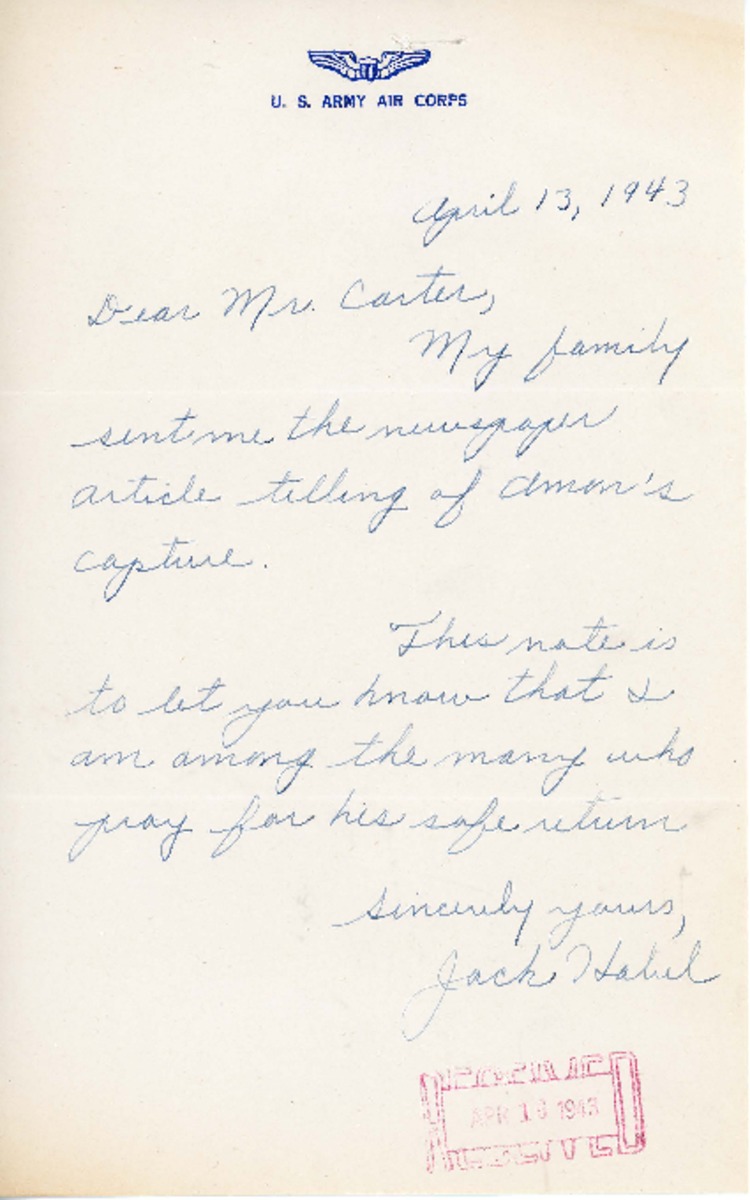 U. S. ARMY AIR CORPS
April 13, 1943
Dear Mr. Carter,
My family
sent me the newspaper
article telling of Amon's
capture.
This note is
to let you know that I
am among the many who
pray for his safe return
Sincerely yours,
Jack
APR 1 1943